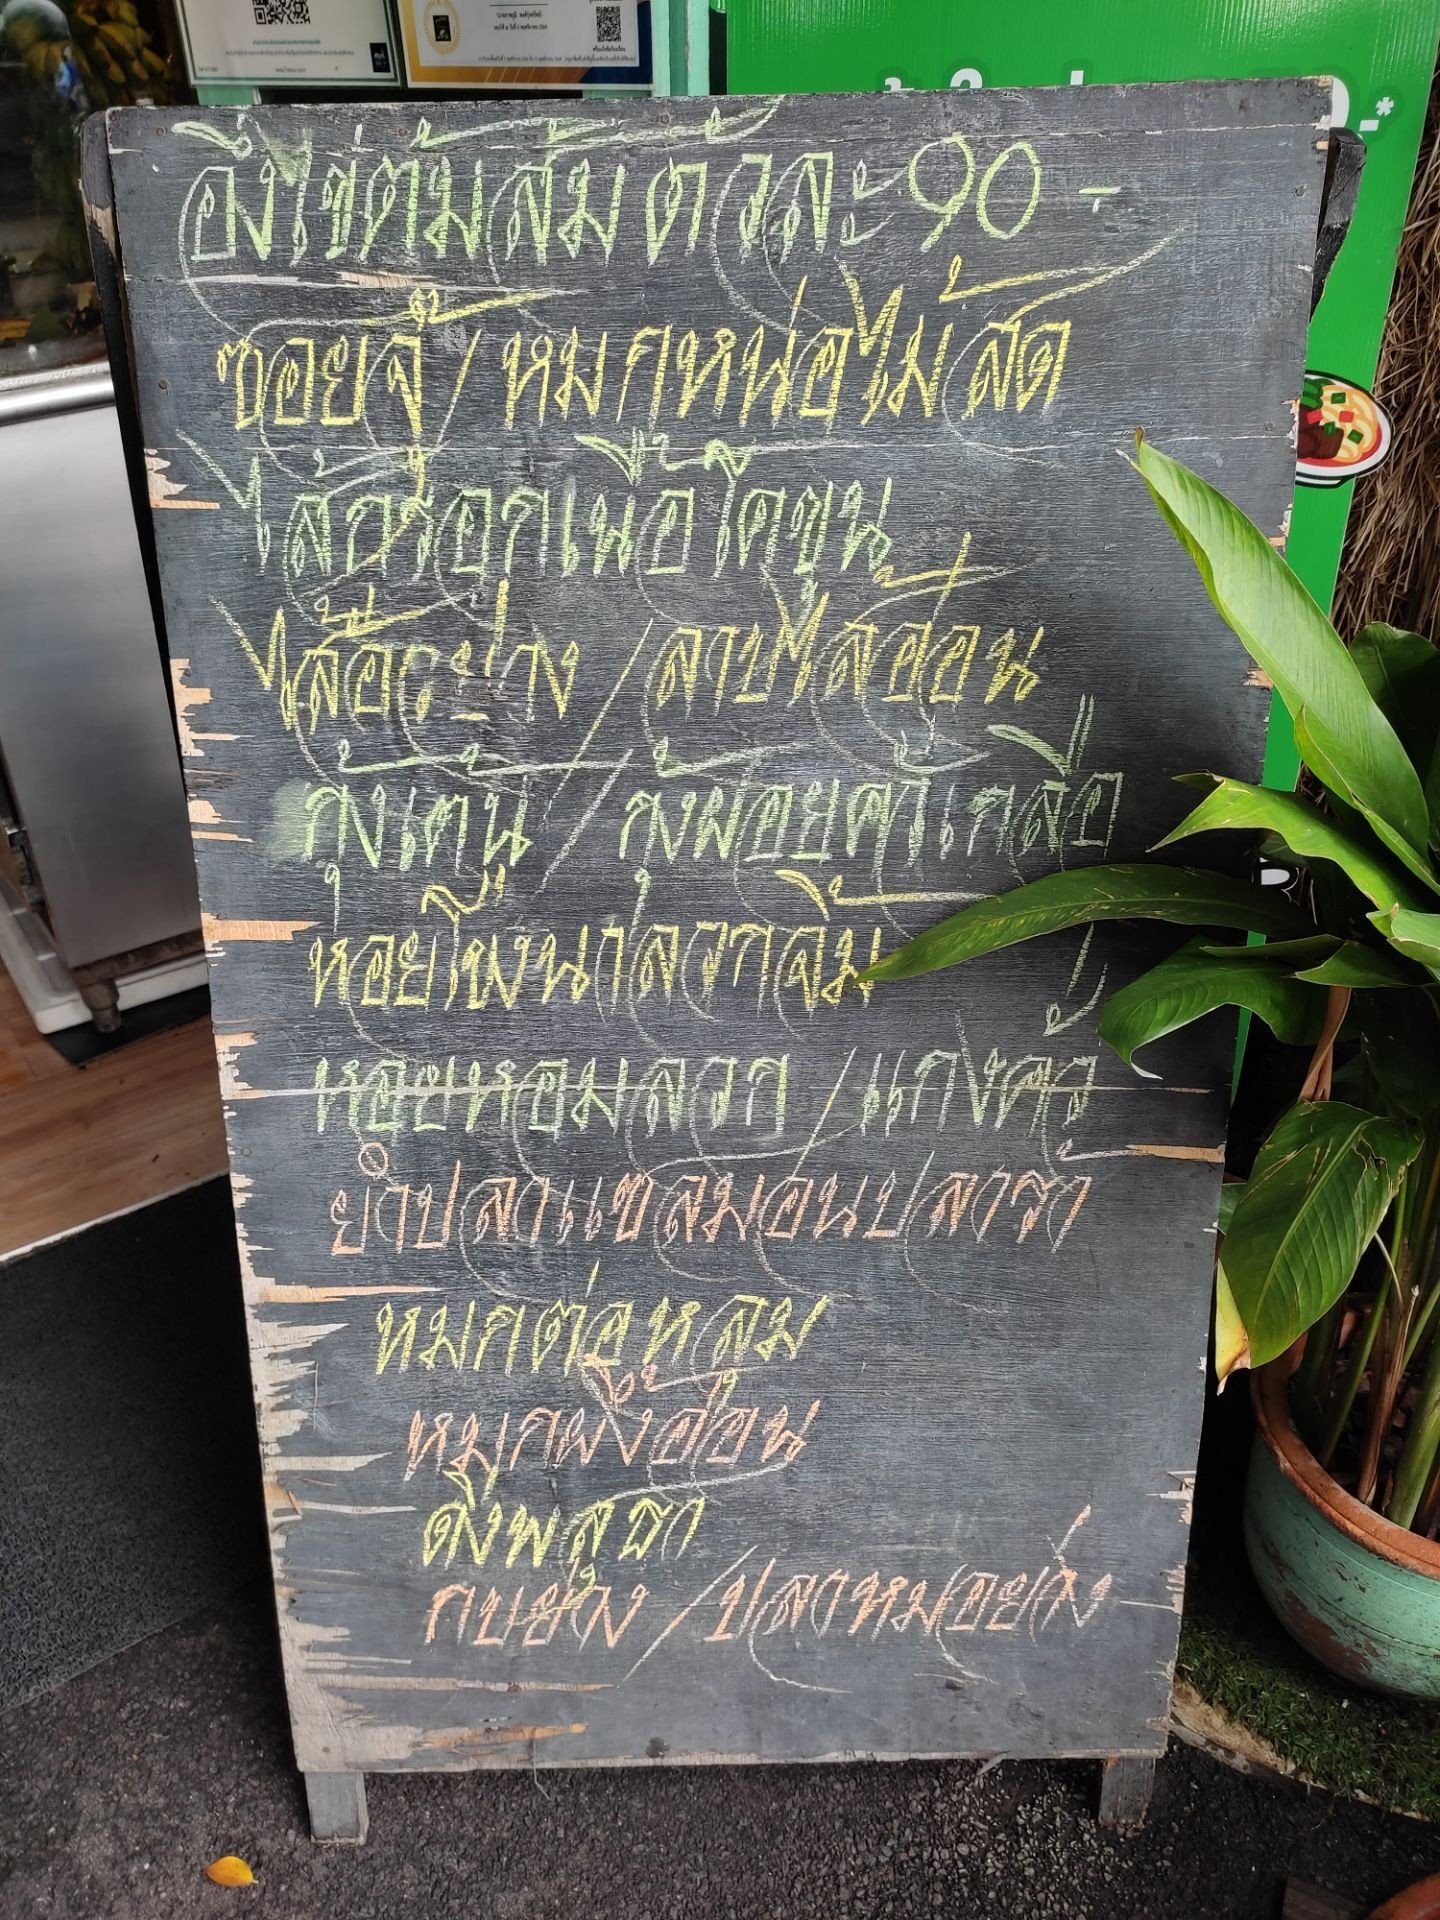 อึ่งไข่ต้มส้ม ตัวละ 90 -
ซอยจุ๊ / หมกหน่อไม้สด
ไส้กรอกเนื้อโคขุน
ไส้อั่วย่าง / ลาบไส้อ่อน
กุ้งเต้น / กุ้งฝอยคั่วเกลือ
หอยโข่งนาลวกจิ้ม
หอยหอมลวก / แกงคั่ว
ยำปลาแซลมอนปลาร้า
หมกต่อหลุม
หมกผึ้งอ่อน
ดึงพสุธา
กบย่าง / ปลาหมอย่าง